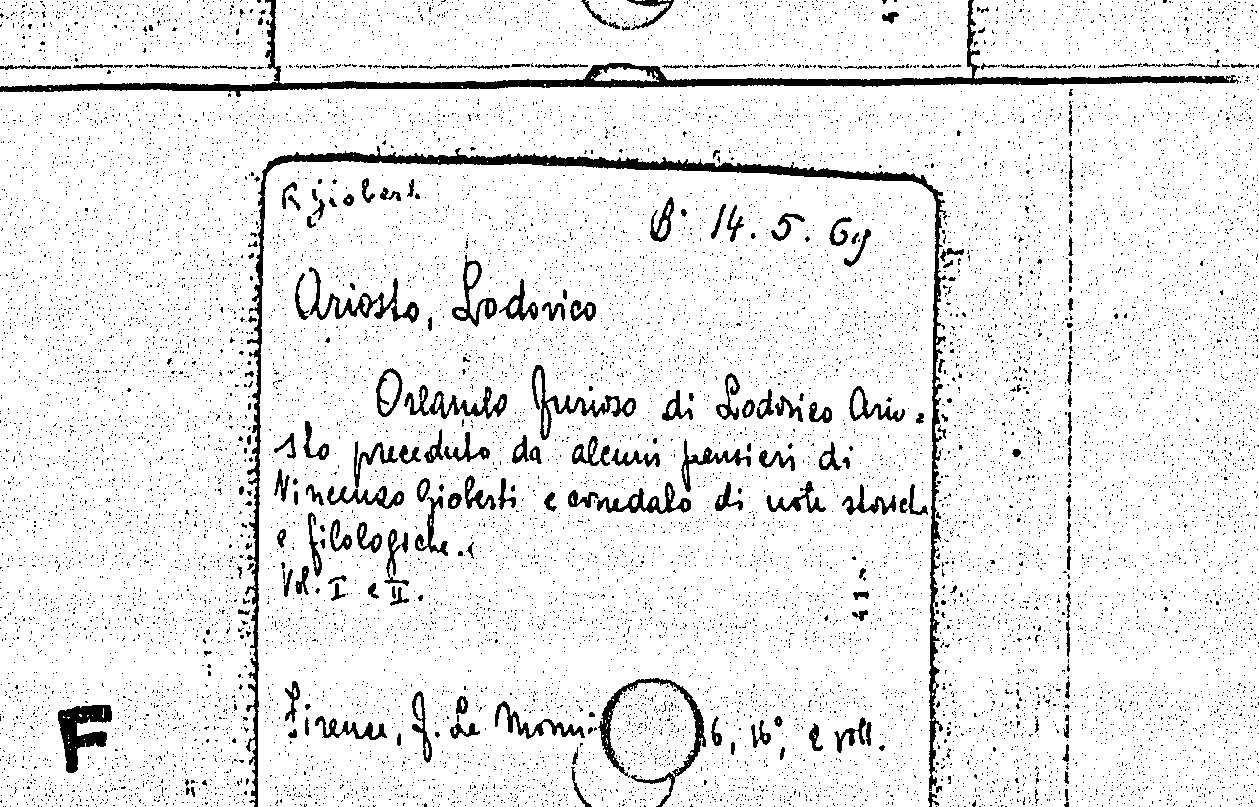 R Gioberti
B° 14. 5. 69
Ariosto, Lodovico
Orlando Furioso di Lodovico Ario-
sto preceduto da alcuni pensieri di
Vincenzo Gioberti e corredato di note storiche
e filologiche.
Vol. I e II.
41.
Firenze, F. Le Monni 6, 16°, 2 voll.
F